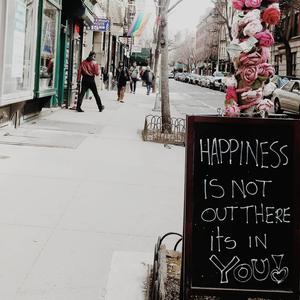 HAPPINESS
is NOT
OUT THERE
its iN
YOU!